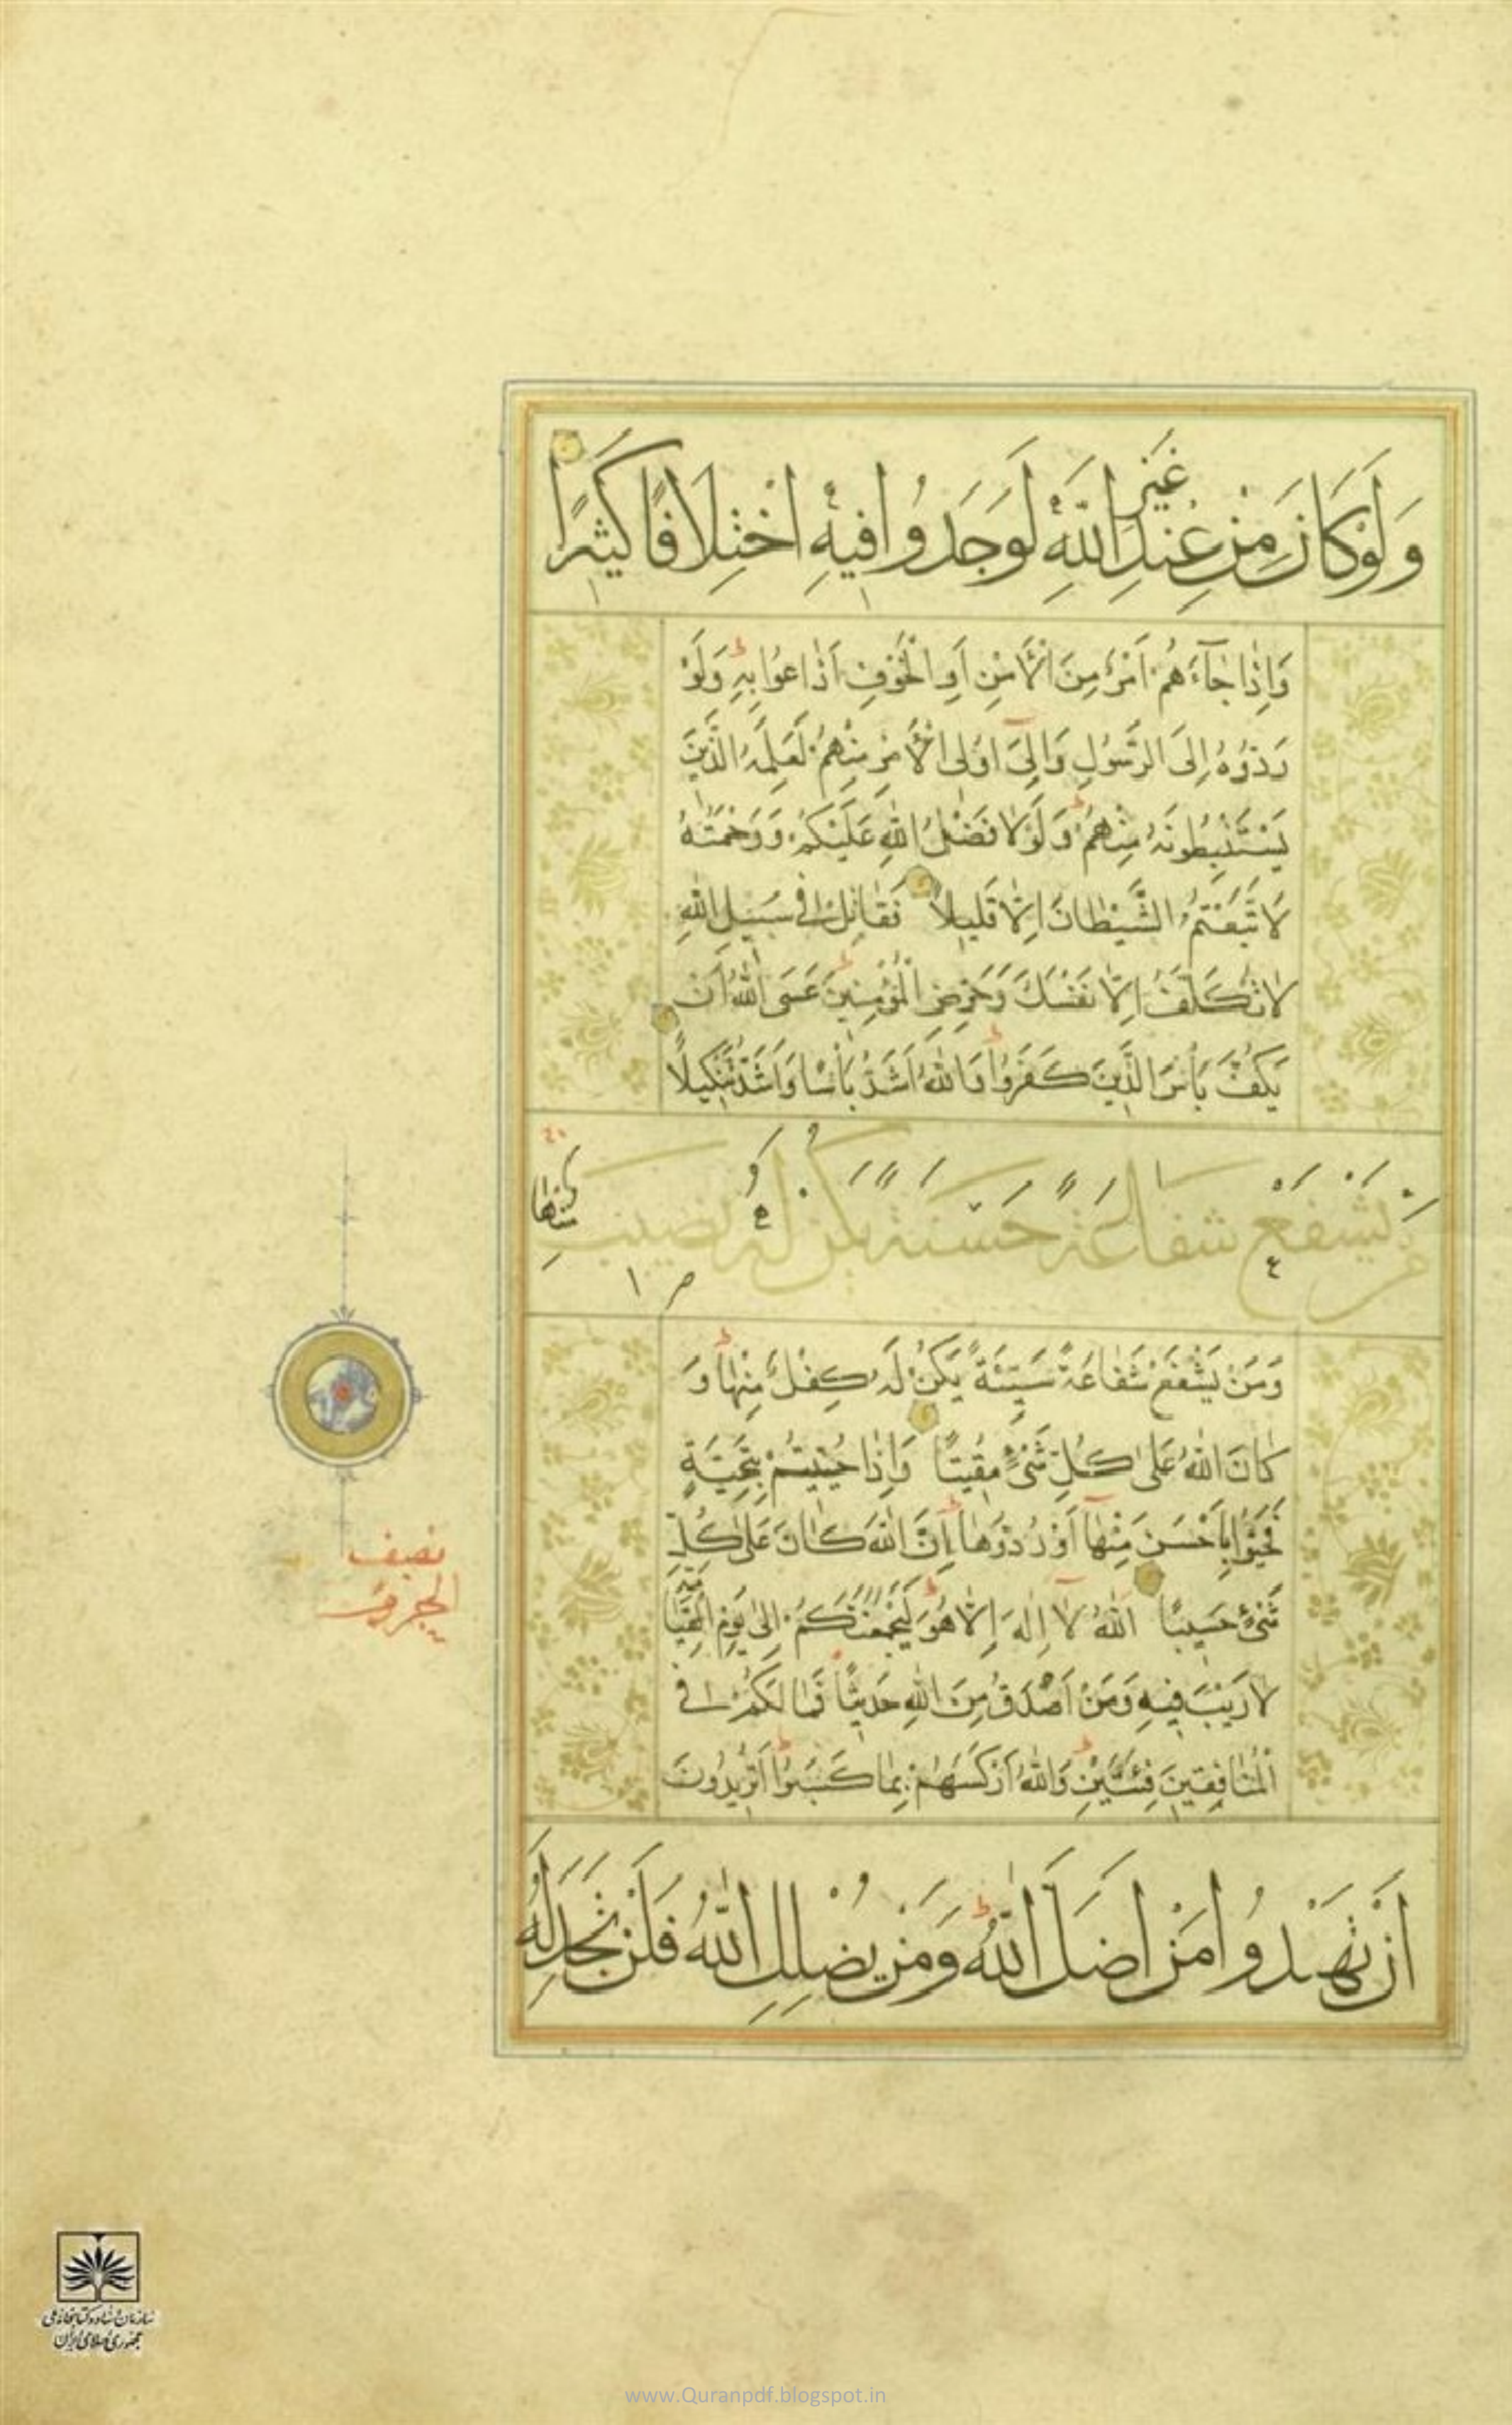 وَلَوْ كَانَ مِنْ عِنْدِ غَيْرِ اللَّهِ لَوَجَدُوا فِيهِ اخْتِلَافًا كَثِيرًا
وَاِذَا جَآءَهُمْ اَمْرٌ مِنَ الْاَمْنِ اَوِ الْخَوْفِ اَذَاعُوا بِهِ وَلَوْ
رَدُّوهُ اِلَى الرَّسُولِ وَاِلَىٓ اُولِى الْاَمْرِ مِنْهُمْ لَعَلِمَهُ الَّذِينَ
يَسْتَنْبِطُونَهُ مِنْهُمْ وَلَوْلَا فَضْلُ اللهِ عَلَيْكُمْ وَرَحْمَتُهُ
لَاتَّبَعْتُمُ الشَّيْطَانَ اِلَّا قَلِيلًا فَقَاتِلْ فِى سَبِيلِ اللهِ
لَا تُكَلَّفُ اِلَّا نَفْسَكَ وَحَرِّضِ الْمُؤْمِنِينَ عَسَى اللهُ اَنْ
يَكُفَّ بَاْسَ الَّذِينَ كَفَرُوا وَاللهُ اَشَدُّ بَاْسًا وَاَشَدُّ تَنْكِيلًا
مَنْ يَشْفَعْ شَفَاعَةً حَسَنَةً يَكُنْ لَهُ نَصِيبٌ مِنْهَا
وَمَنْ يَشْفَعْ شَفَاعَةً سَيِّئَةً يَكُنْ لَهُ كِفْلٌ مِنْهَا وَ
كَانَ اللهُ عَلَى كُلِّ شَىْءٍ مُقِيتًا وَاِذَا حُيِّيتُمْ بِتَحِيَّةٍ
فَحَيُّوا بِاَحْسَنَ مِنْهَآ اَوْ رُدُّوهَا اِنَّ اللهَ كَانَ عَلَى كُلِّ
شَىْءٍ حَسِيبًا اَللهُ لَآ اِلٰهَ اِلَّا هُوَ لَيَجْمَعَنَّكُمْ اِلَى يَوْمِ الْقِيَامَةِ
لَا رَيْبَ فِيهِ وَمَنْ اَصْدَقُ مِنَ اللهِ حَدِيثًا فَمَا لَكُمْ فِى
الْمُنَافِقِينَ فِئَتَيْنِ وَاللهُ اَرْكَسَهُمْ بِمَا كَسَبُوا اَتُرِيدُونَ
اَنْ تَهْدُوا مَنْ اَضَلَّ اللَّهُ وَمَنْ يُضْلِلِ اللَّهُ فَلَنْ تَجِدَ لَهُ
نصف
الجزو
سازمان اسناد و کتابخانه ملی
جمهوری اسلامی ایران
www.Quranpdf.blogspot.in